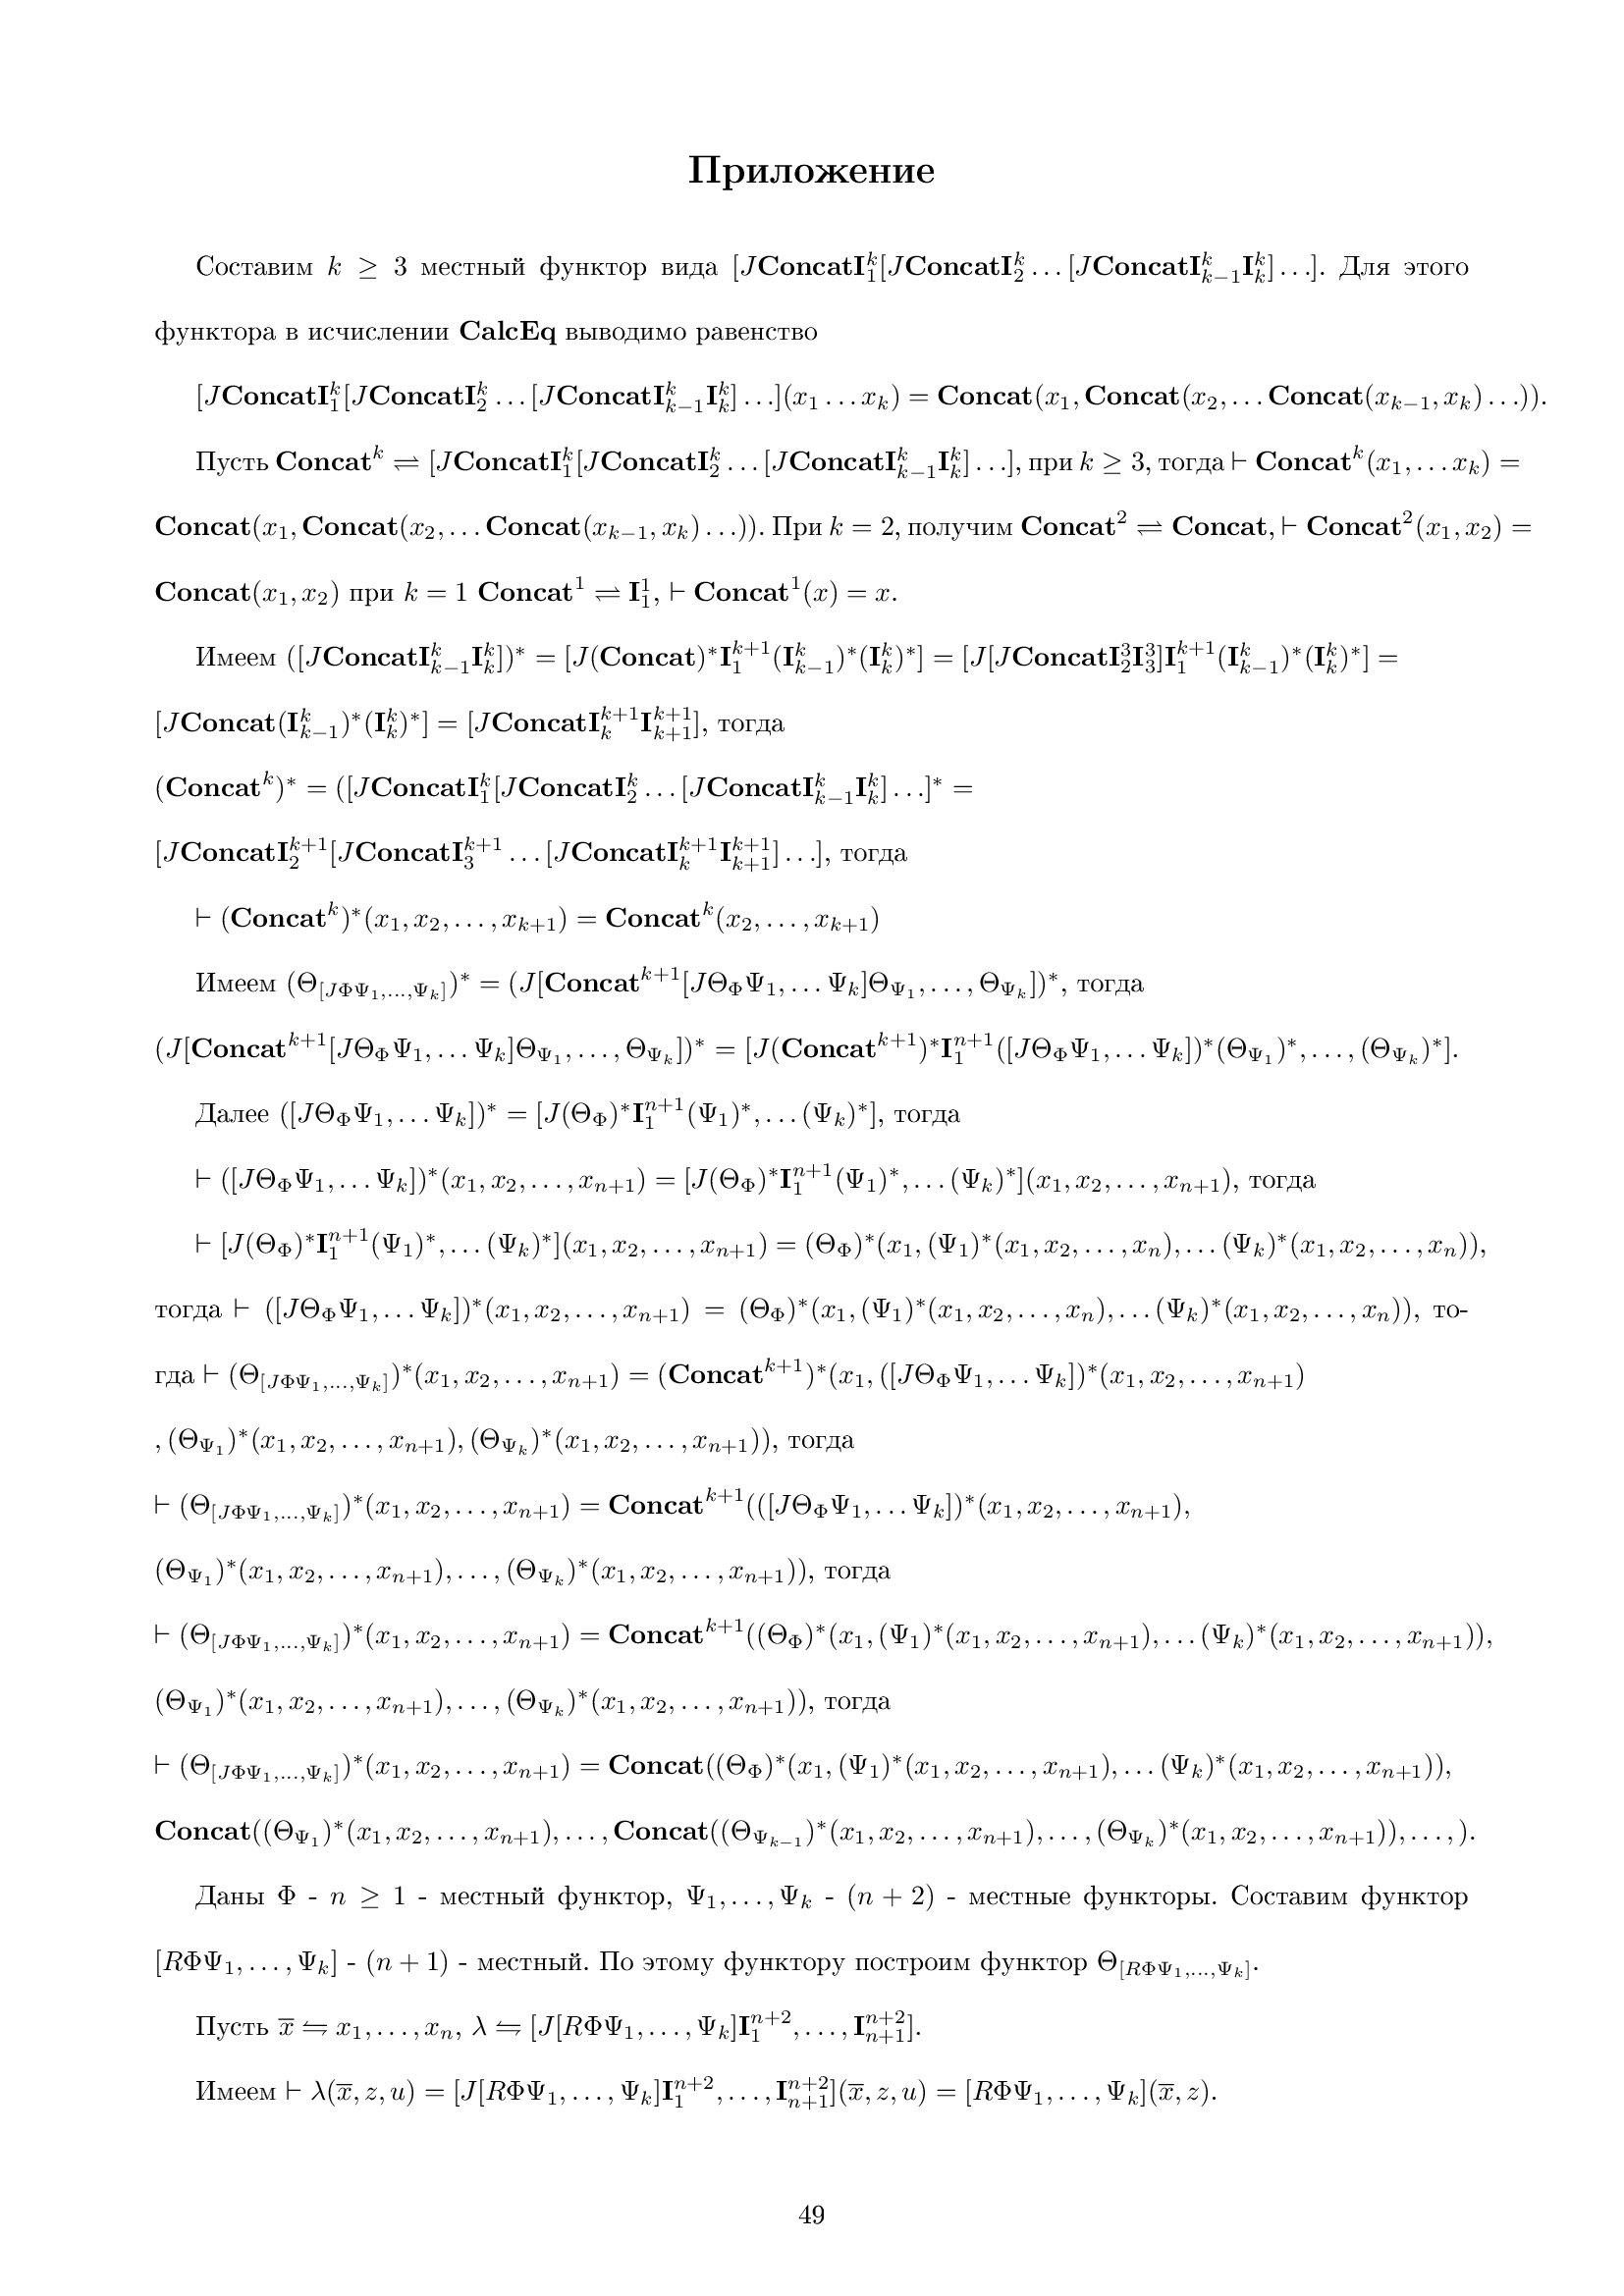 Приложение
Составим $k \geq 3$ местный функтор вида $[J\mathbf{Concat}\mathbf{I}_1^k[J\mathbf{Concat}\mathbf{I}_2^k \ldots [J\mathbf{Concat}\mathbf{I}_{k-1}^k\mathbf{I}_k^k] \ldots]$. Для этого
функтора в исчислении $\mathbf{CalcEq}$ выводимо равенство
$[J\mathbf{Concat}\mathbf{I}_1^k[J\mathbf{Concat}\mathbf{I}_2^k \ldots [J\mathbf{Concat}\mathbf{I}_{k-1}^k\mathbf{I}_k^k] \ldots](x_1 \ldots x_k) = \mathbf{Concat}(x_1, \mathbf{Concat}(x_2, \ldots \mathbf{Concat}(x_{k-1}, x_k) \ldots))$.
Пусть $\mathbf{Concat}^k \rightleftharpoons [J\mathbf{Concat}\mathbf{I}_1^k[J\mathbf{Concat}\mathbf{I}_2^k \ldots [J\mathbf{Concat}\mathbf{I}_{k-1}^k\mathbf{I}_k^k] \ldots]$, при $k \geq 3$, тогда $\vdash \mathbf{Concat}^k(x_1, \ldots x_k) =$
$\mathbf{Concat}(x_1, \mathbf{Concat}(x_2, \ldots \mathbf{Concat}(x_{k-1}, x_k) \ldots))$. При $k = 2$, получим $\mathbf{Concat}^2 \rightleftharpoons \mathbf{Concat}$, $\vdash \mathbf{Concat}^2(x_1, x_2) =$
$\mathbf{Concat}(x_1, x_2)$ при $k = 1$ $\mathbf{Concat}^1 \rightleftharpoons \mathbf{I}_1^1$, $\vdash \mathbf{Concat}^1(x) = x$.
Имеем $([J\mathbf{Concat}\mathbf{I}_{k-1}^k\mathbf{I}_k^k])^* = [J(\mathbf{Concat})^*\mathbf{I}_1^{k+1}(\mathbf{I}_{k-1}^k)^*(\mathbf{I}_k^k)^*] = [J[J\mathbf{Concat}\mathbf{I}_2^3\mathbf{I}_3^3]\mathbf{I}_1^{k+1}(\mathbf{I}_{k-1}^k)^*(\mathbf{I}_k^k)^*] =$
$[J\mathbf{Concat}(\mathbf{I}_{k-1}^k)^*(\mathbf{I}_k^k)^*] = [J\mathbf{Concat}\mathbf{I}_k^{k+1}\mathbf{I}_{k+1}^{k+1}]$, тогда
$(\mathbf{Concat}^k)^* = ([J\mathbf{Concat}\mathbf{I}_1^k[J\mathbf{Concat}\mathbf{I}_2^k \ldots [J\mathbf{Concat}\mathbf{I}_{k-1}^k\mathbf{I}_k^k] \ldots]^* =$
$[J\mathbf{Concat}\mathbf{I}_2^{k+1}[J\mathbf{Concat}\mathbf{I}_3^{k+1} \ldots [J\mathbf{Concat}\mathbf{I}_k^{k+1}\mathbf{I}_{k+1}^{k+1}] \ldots]$, тогда
$\vdash (\mathbf{Concat}^k)^*(x_1, x_2, \ldots, x_{k+1}) = \mathbf{Concat}^k(x_2, \ldots, x_{k+1})$
Имеем $(\Theta_{[J\Phi\Psi_1,\ldots,\Psi_k]})^* = (J[\mathbf{Concat}^{k+1}[J\Theta_\Phi\Psi_1, \ldots \Psi_k]\Theta_{\Psi_1}, \ldots, \Theta_{\Psi_k}])^*$, тогда
$(J[\mathbf{Concat}^{k+1}[J\Theta_\Phi\Psi_1, \ldots \Psi_k]\Theta_{\Psi_1}, \ldots, \Theta_{\Psi_k}])^* = [J(\mathbf{Concat}^{k+1})^*\mathbf{I}_1^{n+1}([J\Theta_\Phi\Psi_1, \ldots \Psi_k])^*(\Theta_{\Psi_1})^*, \ldots, (\Theta_{\Psi_k})^*]$.
Далее $([J\Theta_\Phi\Psi_1, \ldots \Psi_k])^* = [J(\Theta_\Phi)^*\mathbf{I}_1^{n+1}(\Psi_1)^*, \ldots (\Psi_k)^*]$, тогда
$\vdash ([J\Theta_\Phi\Psi_1, \ldots \Psi_k])^*(x_1, x_2, \ldots, x_{n+1}) = [J(\Theta_\Phi)^*\mathbf{I}_1^{n+1}(\Psi_1)^*, \ldots (\Psi_k)^*](x_1, x_2, \ldots, x_{n+1})$, тогда
$\vdash [J(\Theta_\Phi)^*\mathbf{I}_1^{n+1}(\Psi_1)^*, \ldots (\Psi_k)^*](x_1, x_2, \ldots, x_{n+1}) = (\Theta_\Phi)^*(x_1, (\Psi_1)^*(x_1, x_2, \ldots, x_n), \ldots (\Psi_k)^*(x_1, x_2, \ldots, x_n))$,
тогда $\vdash ([J\Theta_\Phi\Psi_1, \ldots \Psi_k])^*(x_1, x_2, \ldots, x_{n+1}) = (\Theta_\Phi)^*(x_1, (\Psi_1)^*(x_1, x_2, \ldots, x_n), \ldots (\Psi_k)^*(x_1, x_2, \ldots, x_n))$, то-
гда $\vdash (\Theta_{[J\Phi\Psi_1,\ldots,\Psi_k]})^*(x_1, x_2, \ldots, x_{n+1}) = (\mathbf{Concat}^{k+1})^*(x_1, ([J\Theta_\Phi\Psi_1, \ldots \Psi_k])^*(x_1, x_2, \ldots, x_{n+1})$
$, (\Theta_{\Psi_1})^*(x_1, x_2, \ldots, x_{n+1}), (\Theta_{\Psi_k})^*(x_1, x_2, \ldots, x_{n+1}))$, тогда
$\vdash (\Theta_{[J\Phi\Psi_1,\ldots,\Psi_k]})^*(x_1, x_2, \ldots, x_{n+1}) = \mathbf{Concat}^{k+1}(([J\Theta_\Phi\Psi_1, \ldots \Psi_k])^*(x_1, x_2, \ldots, x_{n+1}),$
$(\Theta_{\Psi_1})^*(x_1, x_2, \ldots, x_{n+1}), \ldots, (\Theta_{\Psi_k})^*(x_1, x_2, \ldots, x_{n+1}))$, тогда
$\vdash (\Theta_{[J\Phi\Psi_1,\ldots,\Psi_k]})^*(x_1, x_2, \ldots, x_{n+1}) = \mathbf{Concat}^{k+1}((\Theta_\Phi)^*(x_1, (\Psi_1)^*(x_1, x_2, \ldots, x_{n+1}), \ldots (\Psi_k)^*(x_1, x_2, \ldots, x_{n+1})),$
$(\Theta_{\Psi_1})^*(x_1, x_2, \ldots, x_{n+1}), \ldots, (\Theta_{\Psi_k})^*(x_1, x_2, \ldots, x_{n+1}))$, тогда
$\vdash (\Theta_{[J\Phi\Psi_1,\ldots,\Psi_k]})^*(x_1, x_2, \ldots, x_{n+1}) = \mathbf{Concat}((\Theta_\Phi)^*(x_1, (\Psi_1)^*(x_1, x_2, \ldots, x_{n+1}), \ldots (\Psi_k)^*(x_1, x_2, \ldots, x_{n+1})),$
$\mathbf{Concat}((\Theta_{\Psi_1})^*(x_1, x_2, \ldots, x_{n+1}), \ldots, \mathbf{Concat}((\Theta_{\Psi_{k-1}})^*(x_1, x_2, \ldots, x_{n+1}), \ldots, (\Theta_{\Psi_k})^*(x_1, x_2, \ldots, x_{n+1})), \ldots, )$.
Даны $\Phi$ - $n \geq 1$ - местный функтор, $\Psi_1, \ldots, \Psi_k$ - $(n + 2)$ - местные функторы. Составим функтор
$[R\Phi\Psi_1, \ldots, \Psi_k]$ - $(n + 1)$ - местный. По этому функтору построим функтор $\Theta_{[R\Phi\Psi_1,\ldots,\Psi_k]}$.
Пусть $\overline{x} \leftrightharpoons x_1, \ldots, x_n$, $\lambda \leftrightharpoons [J[R\Phi\Psi_1, \ldots, \Psi_k]\mathbf{I}_1^{n+2}, \ldots, \mathbf{I}_{n+1}^{n+2}]$.
Имеем $\vdash \lambda(\overline{x}, z, u) = [J[R\Phi\Psi_1, \ldots, \Psi_k]\mathbf{I}_1^{n+2}, \ldots, \mathbf{I}_{n+1}^{n+2}](\overline{x}, z, u) = [R\Phi\Psi_1, \ldots, \Psi_k](\overline{x}, z)$.
49